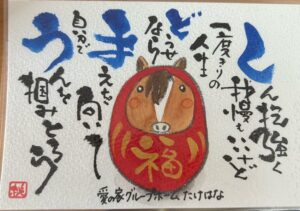 しん抱強く
我慢もいいけど
一度きりの
人生
どうせなら
まえを向いて
自分で
うんを掴みとろう
福
愛の家グループホームたけはな